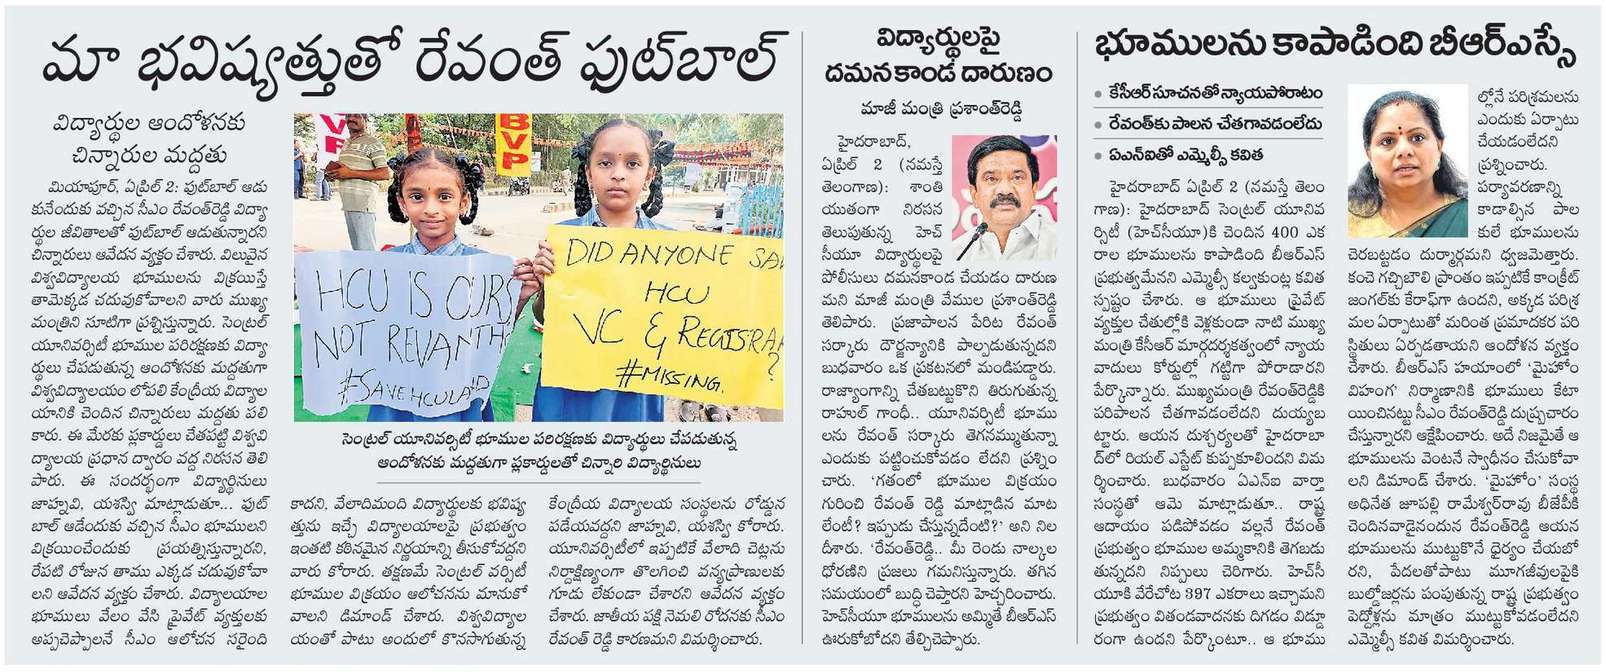 మా భవిష్యత్తుతో రేవంత్ ఫుట్‌బాల్
విద్యార్థుల ఆందోళనకు
చిన్నారుల మద్దతు
మియాపూర్, ఏప్రిల్ 2: ఫుట్‌బాల్ ఆడు
కునేందుకు వచ్చిన సీఎం రేవంత్‌రెడ్డి విద్యా
ర్థుల జీవితాలతో ఫుట్‌బాల్ ఆడుతున్నారని
చిన్నారులు ఆవేదన వ్యక్తం చేశారు. విలువైన
విశ్వవిద్యాలయ భూములను విక్రయిస్తే
తామెక్కడ చదువుకోవాలని వారు ముఖ్య
మంత్రిని సూటిగా ప్రశ్నిస్తున్నారు. సెంట్రల్
యూనివర్సిటీ భూముల పరిరక్షణకు విద్యా
ర్థులు చేపడుతున్న ఆందోళనకు మద్దతుగా
విశ్వవిద్యాలయం లోపలి కేంద్రీయ విద్యాల
యానికి చెందిన చిన్నారులు మద్దతు పలి
కారు. ఈ మేరకు ప్లకార్డులు చేతపట్టి విశ్వవి
ద్యాలయ ప్రధాన ద్వారం వద్ద నిరసన తెలి
పారు. ఈ సందర్భంగా విద్యార్థినులు
జాహ్నవి, యశస్వి మాట్లాడుతూ... ఫుట్
బాల్ ఆడేందుకు వచ్చిన సీఎం భూములని
విక్రయించేందుకు ప్రయత్నిస్తున్నారని,
రేపటి రోజున తాము ఎక్కడ చదువుకోవా
లని ఆవేదన వ్యక్తం చేశారు. విద్యాలయాల
భూములు వేలం వేసి ప్రైవేట్ వ్యక్తులకు
అప్పచెప్పాలనే సీఎం ఆలోచన సరైంది
VF
BVP
HCU IS OURS
NOT REVANTH'S
#SAVEHCULAND
DID ANYONE SAW
HCU
VC & REGISRAR
?
#MISSING.
సెంట్రల్ యూనివర్సిటీ భూముల పరిరక్షణకు విద్యార్థులు చేపడుతున్న
ఆందోళనకు మద్దతుగా ప్లకార్డులతో చిన్నారి విద్యార్థినులు
కాదని, వేలాదిమంది విద్యార్థులకు భవిష్య
త్తును ఇచ్చే విద్యాలయాలపై ప్రభుత్వం
ఇంతటి కఠినమైన నిర్ణయాన్ని తీసుకోవద్దని
వారు కోరారు. తక్షణమే సెంట్రల్ వర్సిటీ
భూముల విక్రయం ఆలోచనను మానుకో
వాలని డిమాండ్ చేశారు. విశ్వవిద్యాల
యంతో పాటు అందులో కొనసాగుతున్న
కేంద్రీయ విద్యాలయ సంస్థలను రోడ్డున
పడేయవద్దని జాహ్నవి, యశస్వి కోరారు.
యూనివర్సిటీలో ఇప్పటికే వేలాది చెట్లను
నిర్దాక్షిణ్యంగా తొలగించి వన్యప్రాణులకు
గూడు లేకుండా చేశారని ఆవేదన వ్యక్తం
చేశారు. జాతీయ పక్షి నెమలి రోదనకు సీఎం
రేవంత్ రెడ్డి కారణమని విమర్శించారు.
విద్యార్థులపై
దమనకాండ దారుణం
మాజీ మంత్రి ప్రశాంత్‌రెడ్డి
హైదరాబాద్,
ఏప్రిల్ 2 (నమస్తే
తెలంగాణ): శాంతి
యుతంగా నిరసన
తెలుపుతున్న హెచ్
సీయూ విద్యార్థులపై
పోలీసులు దమనకాండ చేయడం దారుణ
మని మాజీ మంత్రి వేముల ప్రశాంత్‌రెడ్డి
తెలిపారు. ప్రజాపాలన పేరిట రేవంత్
సర్కారు దౌర్జన్యానికి పాల్పడుతున్నదని
బుధవారం ఒక ప్రకటనలో మండిపడ్డారు.
రాజ్యాంగాన్ని చేతబట్టుకొని తిరుగుతున్న
రాహుల్ గాంధీ.. యూనివర్సిటీ భూము
లను రేవంత్ సర్కారు తెగనమ్ముతున్నా
ఎందుకు పట్టించుకోవడం లేదని ప్రశ్నిం
చారు. 'గతంలో భూముల విక్రయం
గురించి రేవంత్ రెడ్డి మాట్లాడిన మాట
లేంటీ? ఇప్పుడు చేస్తున్నదేంటి?' అని నిల
దీశారు. 'రేవంత్‌రెడ్డి.. మీ రెండు నాల్కల
ధోరణిని ప్రజలు గమనిస్తున్నారు. తగిన
సమయంలో బుద్ధి చెప్తారని హెచ్చరించారు.
హెచ్‌సీయూ భూములను అమ్మితే బీఆర్ఎస్
ఊరుకోబోదని తేల్చిచెప్పారు.
భూములను కాపాడింది బీఆర్ఎస్సే
• కేసీఆర్ సూచనతో న్యాయపోరాటం
• రేవంత్‌కు పాలన చేతగావడంలేదు
• ఏఎన్ఐతో ఎమ్మెల్సీ కవిత
హైదరాబాద్ ఏప్రిల్ 2 (నమస్తే తెలం
గాణ): హైదరాబాద్ సెంట్రల్ యూనివ
ర్సిటీ (హెచ్‌సీయూ)కి చెందిన 400 ఎక
రాల భూములను కాపాడింది బీఆర్ఎస్
ప్రభుత్వమేనని ఎమ్మెల్సీ కల్వకుంట్ల కవిత
స్పష్టం చేశారు. ఆ భూములు ప్రైవేట్
వ్యక్తుల చేతుల్లోకి వెళ్లకుండా నాటి ముఖ్య
మంత్రి కేసీఆర్ మార్గదర్శకత్వంలో న్యాయ
వాదులు కోర్టుల్లో గట్టిగా పోరాడారని
పేర్కొన్నారు. ముఖ్యమంత్రి రేవంత్‌రెడ్డికి
పరిపాలన చేతగావడంలేదని దుయ్యబ
ట్టారు. ఆయన దుశ్చర్యలతో హైదరాబా
ద్‌లో రియల్ ఎస్టేట్ కుప్పకూలిందని విమ
ర్శించారు. బుధవారం ఏఎన్ఐ వార్తా
సంస్థతో ఆమె మాట్లాడుతూ.. రాష్ట్ర
ఆదాయం పడిపోవడం వల్లనే రేవంత్
ప్రభుత్వం భూముల అమ్మకానికి తెగబడు
తున్నదని నిప్పులు చెరిగారు. హెచ్‌సీ
యూకి వేరేచోట 397 ఎకరాలు ఇచ్చామని
ప్రభుత్వం వితండవాదనకు దిగడం విడ్డూ
రంగా ఉందని పేర్కొంటూ.. ఆ భూము
ల్లోనే పరిశ్రమలను
ఎందుకు ఏర్పాటు
చేయడంలేదని
ప్రశ్నించారు.
పర్యావరణాన్ని
కాడాల్సిన పాల
కులే భూములను
చెరబట్టడం దుర్మార్గమని ధ్వజమెత్తారు.
కంచె గచ్చిబౌలి ప్రాంతం ఇప్పటికే కాంక్రీట్
జంగల్‌కు కేరాఫ్‌గా ఉందని, అక్కడ పరిశ్ర
మల ఏర్పాటుతో మరింత ప్రమాదకర పరి
స్థితులు ఏర్పడతాయని ఆందోళన వ్యక్తం
చేశారు. బీఆర్ఎస్ హయాంలో 'మైహోం
విహంగ' నిర్మాణానికి భూములు కేటా
యించినట్టు సీఎం రేవంత్‌రెడ్డి దుష్ప్రచారం
చేస్తున్నారని ఆక్షేపించారు. అదే నిజమైతే ఆ
భూములను వెంటనే స్వాధీనం చేసుకోవా
లని డిమాండ్ చేశారు. 'మైహోం' సంస్థ
అధినేత జూపల్లి రామేశ్వర్‌రావు బీజేపీకి
చెందినవాడైనందున రేవంత్‌రెడ్డి ఆయన
భూములను ముట్టుకొనే ధైర్యం చేయబో
రని, పేదలతోపాటు మూగజీవులపైకి
బుల్డోజర్లను పంపుతున్న రాష్ట్ర ప్రభుత్వం
పెద్దోళ్లను మాత్రం ముట్టుకోవడంలేదని
ఎమ్మెల్సీ కవిత విమర్శించారు.